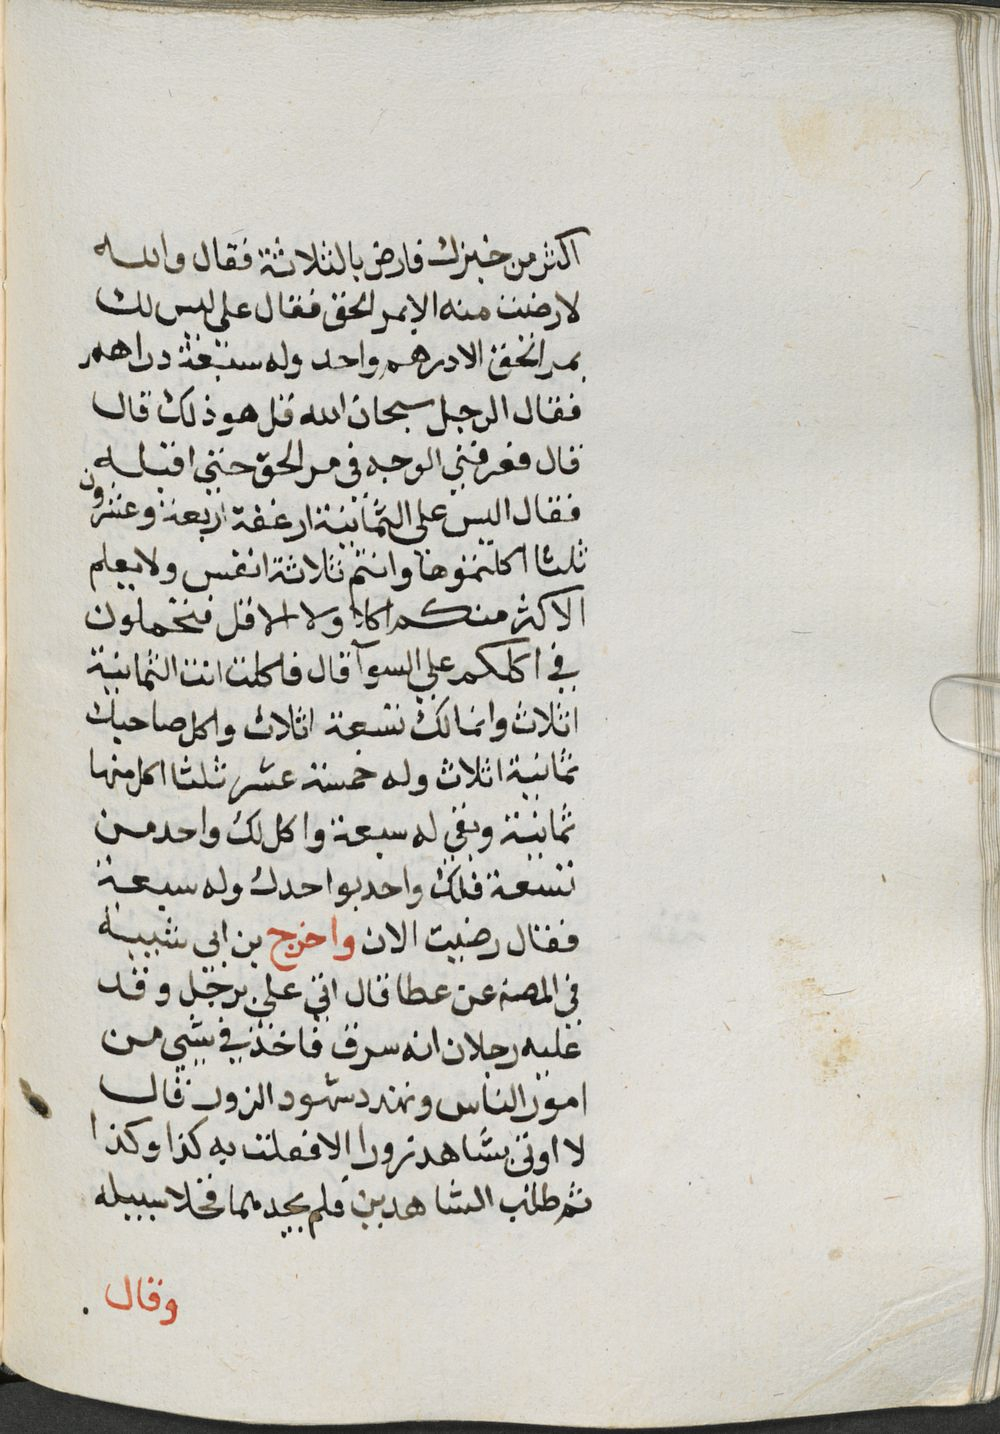 اكثر من خبزك فارض بالثلاثة فقال والله
لارضيت منه الابمر الحق فقال علي ليس لك
بمر الحق الا درهم واحد وله سبعة دراهم
فقال الرجل سبحان الله قل هو ذلك قال
قال فعرفني الوجه في مر الحق حتي اقبله
فقال اليس علي الثمانية ارغفة اربعة وعشرون
ثلثا اكلتموها وانتم ثلاثة انفس ولا يعلم
الاكثر منكم اكلا ولا الاقل فتحملون
في اكلكم علي السوآ قال فاكلت انت الثمانية
اثلاث وانما لك تسعة اثلاث واكل صاحبك
ثمانية اثلاث وله خمسة عشر ثلثا اكل منها
ثمانية وبقي له سبعة واكل لك واحد من
تسعة فلك واحد بواحدك وله سبعة
فقال رضيت الان واخرج بن ابي شيبة
في المصنف عن عطا قال اتي علي برجل وقد
عليه رجلان انه سرق فاخذ في شي من
امور الناس وتهدد شهود الزور قال
لا اوتي بشاهد زورا الا فعلت به كذا وكذا
ثم طلب الشاهدين فلم يجدهما فخلا سبيله
وقال